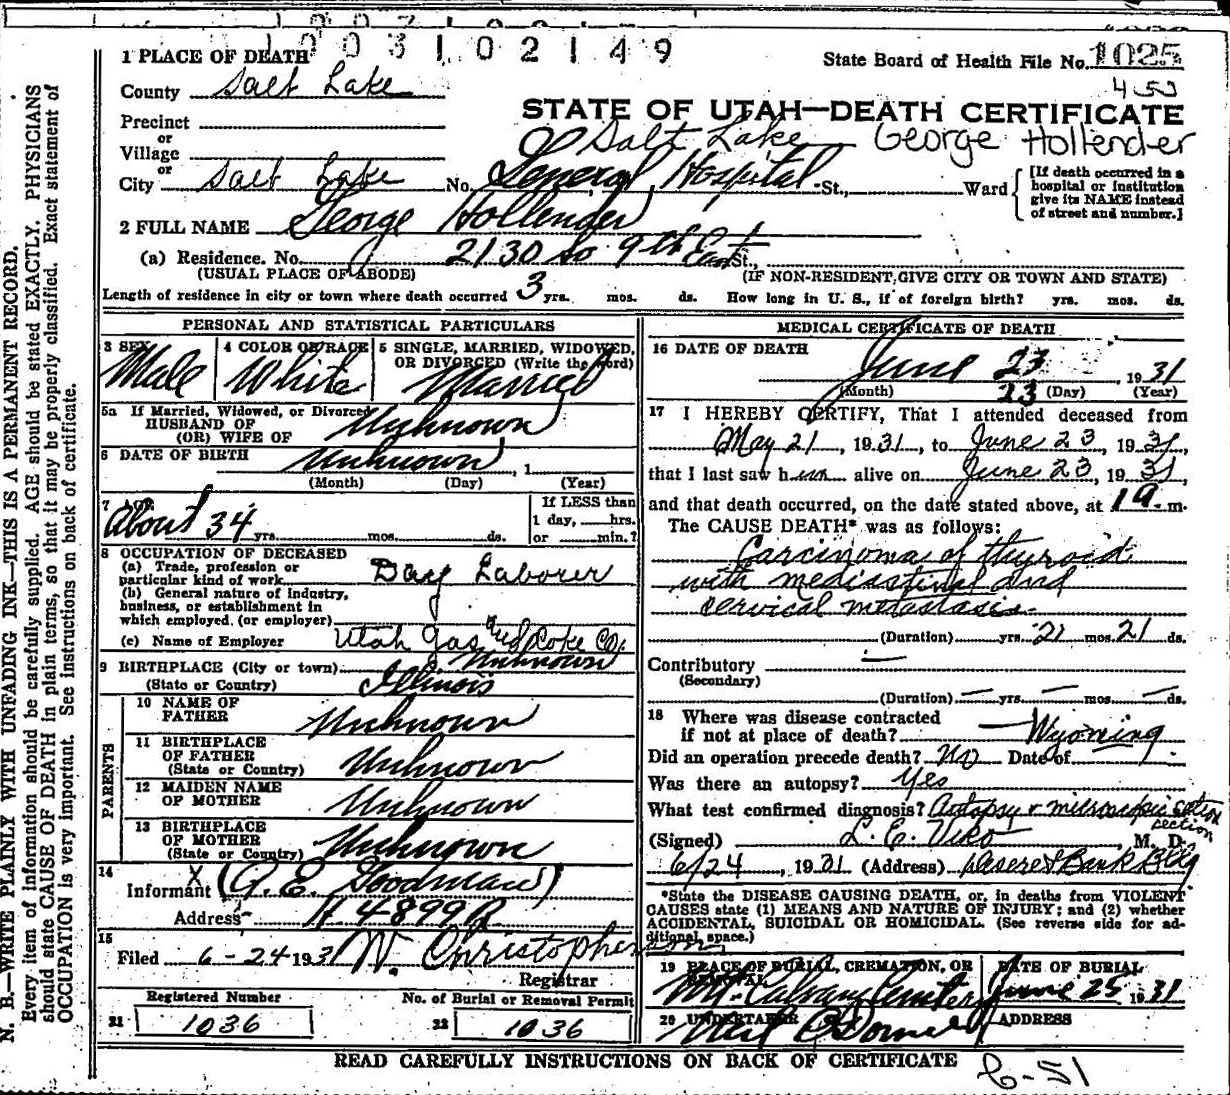 1003102149
1 PLACE OF DEATH
State Board of Health File No. 1025
County Salt Lake
453
STATE OF UTAH—DEATH CERTIFICATE
Precinct
or
Village
Salt Lake George Hollender
or
City Salt Lake No. General Hospital St., Ward
[If death occurred in a
hospital or institution
give its NAME instead
of street and number.]
2 FULL NAME George Hollender
(a) Residence. No. 2130 So 9th East St.,
(USUAL PLACE OF ABODE) (IF NON-RESIDENT, GIVE CITY OR TOWN AND STATE)
Length of residence in city or town where death occurred 3 yrs. mos. ds. How long in U. S., if of foreign birth? yrs. mos. ds.
PERSONAL AND STATISTICAL PARTICULARS
3 SEX
Male
4 COLOR OR RACE
White
5 SINGLE, MARRIED, WIDOWED,
OR DIVORCED (Write the word)
Married
5a If Married, Widowed, or Divorced
HUSBAND OF
(OR) WIFE OF Unknown
6 DATE OF BIRTH Unknown, 1
(Month) (Day) (Year)
7 AGE
About 34 yrs. mos. ds.
If LESS than
1 day, hrs.
or min.?
8 OCCUPATION OF DECEASED
(a) Trade, profession or
particular kind of work Day Laborer
(b) General nature of industry,
business, or establishment in
which employed, (or employer)
(c) Name of Employer Utah Gas and Coke Co.
9 BIRTHPLACE (City or town) Unknown
(State or Country) Illinois
PARENTS
10 NAME OF
FATHER Unknown
11 BIRTHPLACE
OF FATHER
(State or Country) Unknown
12 MAIDEN NAME
OF MOTHER Unknown
13 BIRTHPLACE
OF MOTHER
(State or Country) Unknown
14
Informant X (G. E. Goodman)
Address H 4899R
15
Filed 6-24 1931 W. Christophersen,
Registrar
Registered Number
21 1036
No. of Burial or Removal Permit
22 1036
MEDICAL CERTIFICATE OF DEATH
16 DATE OF DEATH
June 23, 1931
(Month) 23 (Day) (Year)
17 I HEREBY CERTIFY, That I attended deceased from
May 21, 1931, to June 23, 1931,
that I last saw him alive on June 23, 1931
and that death occurred, on the date stated above, at 1 a. m.
The CAUSE DEATH* was as follows:
Carcinoma of thyroid
with mediastinal and
cervical metastasis.
(Duration) yrs. 21 mos. 21 ds.
Contributory —
(Secondary)
(Duration) — yrs. — mos. — ds.
18 Where was disease contracted
if not at place of death? — Wyoming
Did an operation precede death? No Date of
Was there an autopsy? Yes
What test confirmed diagnosis? Autopsy & microscopic section
section
(Signed) L. E. Viko, M. D.
6/24, 1931 (Address) Deseret Bank Bldg
*State the DISEASE CAUSING DEATH, or, in deaths from VIOLENT
CAUSES state (1) MEANS AND NATURE OF INJURY; and (2) whether
ACCIDENTAL, SUICIDAL OR HOMICIDAL. (See reverse side for ad-
ditional space.)
19 PLACE OF BURIAL, CREMATION, OR
REMOVAL
Mt. Calvary Cemetery
DATE OF BURIAL
June 25 1931
20 UNDERTAKER
Neil O'Donnell
ADDRESS
READ CAREFULLY INSTRUCTIONS ON BACK OF CERTIFICATE
N. B.—WRITE PLAINLY WITH UNFADING INK—THIS IS A PERMANENT RECORD.
Every item of information should be carefully supplied. AGE should be stated EXACTLY. PHYSICIANS
should state CAUSE OF DEATH in plain terms, so that it may be properly classified. Exact statement of
OCCUPATION is very important. See instructions on back of certificate.